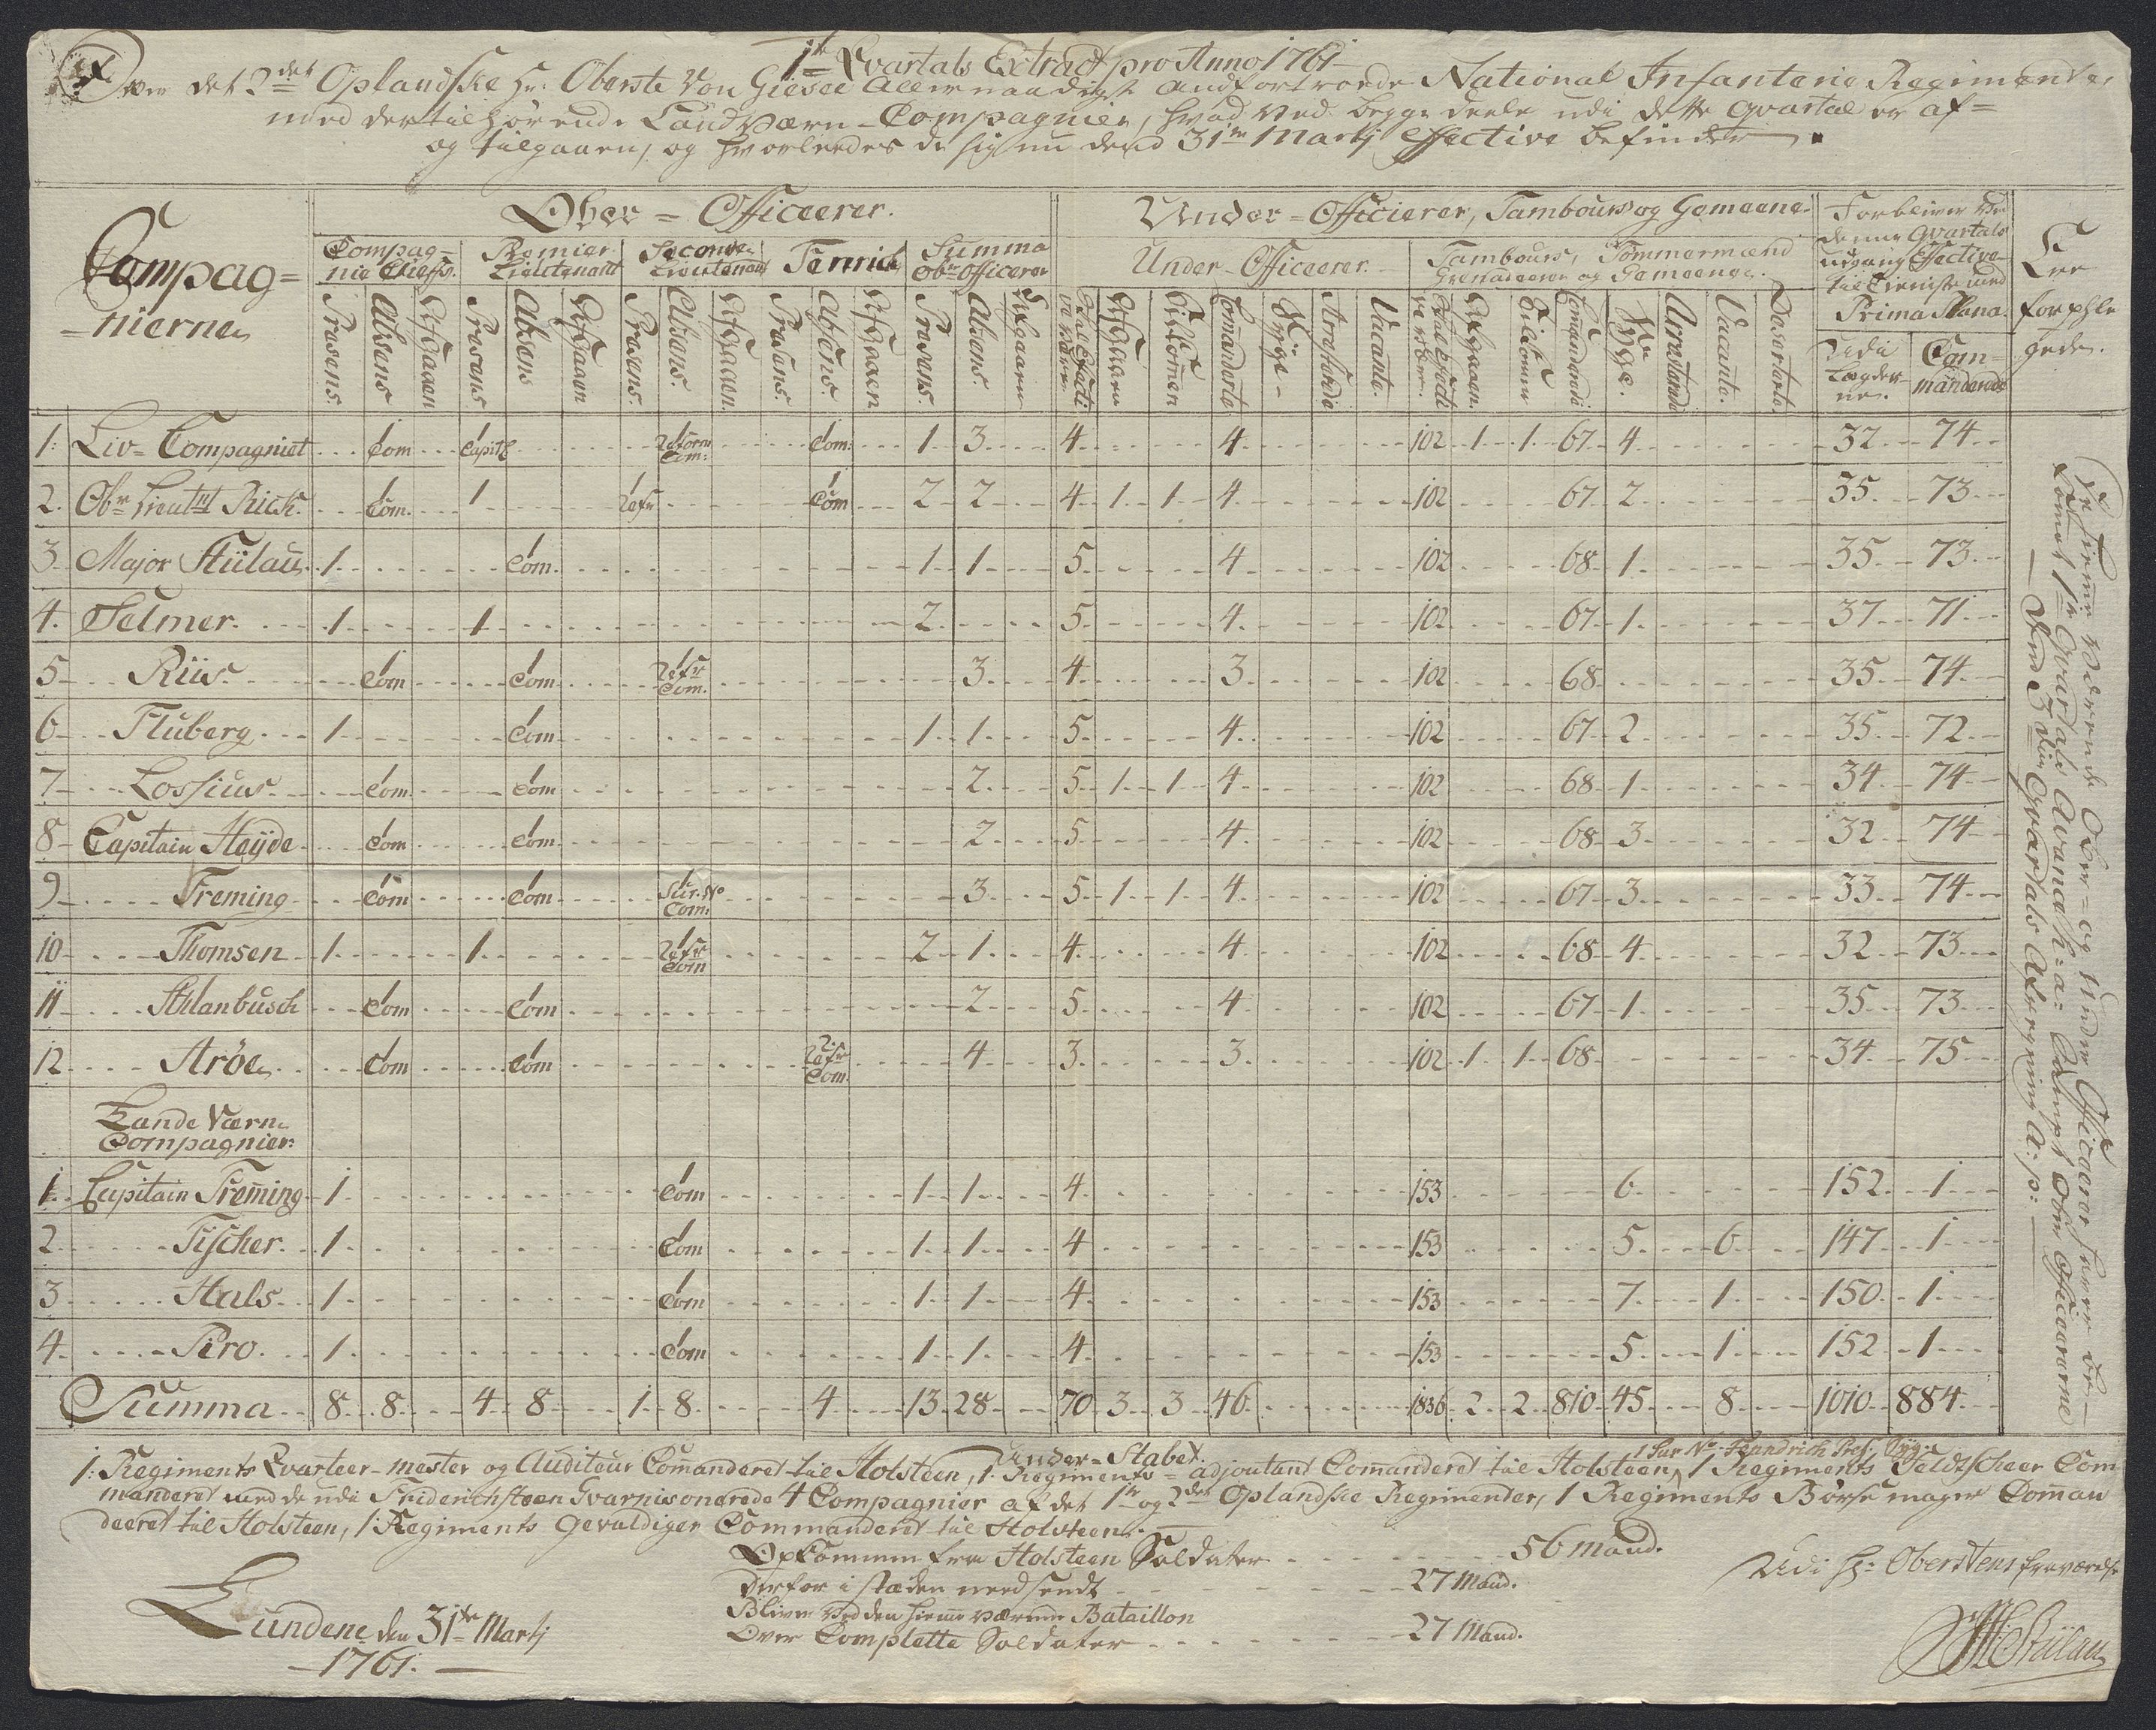 1te Qvartals Extract pro Anno 1761
Over det 2det Oplandske Hr: Oberste Von Giesee Allernaadigst andfortroede National Infanterie Regimente,
med dertilhørende Landværn-Compagnier, hvad ved begge deele udi dette Qvartal er af=
og tilgaaen, og hvorleedes de sig nu dend 31te Martj Effective befinder
Compag=
=nierne
Ober=Officeerer.
Under=Officierer, Tambours og Gemeene.
Forbliver ved
denne Qvartals
udgang Effective
til Tieniste med
Prima Plana.
Compag=
nie Cheffs.
Premier
Lieutenant
Seconde
Lieutenant
Fenrich
Summa
Obr Officerer
Under-Officeerer.
Tambours, Tømmermænd
Grenadeerer og Gemeene.
Udi
Lægder=
ne.
Com=
manderede
Præsens. Absens Afgaaen Præsens Absens Afgaaen Præsens. Absens. Afgaaen. Præsens. Absens. Afgaaen Præsens. Absens. Afgaaen
Afgaaen Tilkomen Comanderte Syge Arresterede Vacante.
Afgaaen. Tilkomen Comanderede Syge. Arresterede Vacante. Deserterte
1: Liv=Compagniet 1 Com 1 Capitl 1 Reform Com: 1 Com: 1 3 4 4 102 1 1 67 4 32 74
2. Obr Lieutnt Rick. 1 Com. 1 1 Refr 1 Com 2 2 4 1 1 4 102 67 2 35 73
3 Major Stülau 1 1 Com. 1 1 5 4 102 68 1 35 73
4. Selmer 1 1 2 5 4 102 67 1 37 71
5 Riis 1 Com 1 Com 1 Refr Com. 3 4 3 102 68 35 74
6 Fluberg 1 1 Com 1 1 5 4 102 67 2 35 72
7 Lossius 1 Com 1 Com 2 5 1 1 4 102 68 1 34 74
8 Capitain Heyde 1 Com 1 Com 2 5 4 102 68 3 32 74
9 Freming 1 Com 1 Com 1 Sur. No Com: 3 5 1 1 4 102 67 3 33 74
10 Thomsen 1 1 1 Refr Com 2 1 4 4 102 68 4 32 73
11 Schlanbusch 1 Com 1 Com 2 5 4 102 67 1 35 73
12 Arøe 1 Com 1 Com 2. Refr Com. 4 3 3 102 1 1 68 34 75
Lande Værn
Compagnier.
1. Capitain Freming 1 1 Com 1 1 4 153 6 152 1
2 Fischer 1 1 Com 1 1 4 153 5 6 147 1
3 Hals 1 1 Com 1 1 4 153 7 1 150 1
4. Pero. 1 1 Com 1 1 4 153 5 1 152 1
Summa 8 8 4 8 1 8 4 13 28 70 3 3 46 1836 2 2 810 45 8 1010 884
Under-Stabet.
1 Sur No: Fændrich Pres: Syg:
1: Regiments Qvarteer-mester og Auditeur Comanderet til Holsteen, 1 Regiments=adjoutant Comanderet til Holsteen, 1 Regiments Feldtscheer Com
manderet med de udi Friderichsteen Gvarnisonerede 4 Compagnier af det 1te og 2det Oplandske Regimenter, 1 Regiments Børse mager Coman
deeret til Holsteen, 1 Regiments Gevaldiger Commanderet til Holsteen.
Opkommen fra Holsteen Soldater 56 mand.
Derfor i stæden needsendt 27 Mand.
Bliver ved den hieme værene Bataillon
Over Complette Soldater 27 Mand.
Lundene den 31te Martj
1761.
Udi Hr: Oberstens fraværelse
Stülau